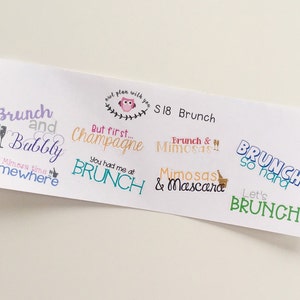 owl plan with you
S18 Brunch
Brunch
and
Bubbly
But first...
Champagne
Brunch &
Mimosas
BRUNCH
so hard
Mimosa time
somewhere
You had me at
BRUNCH
Mimosas
& Mascara
Let's
BRUNCH